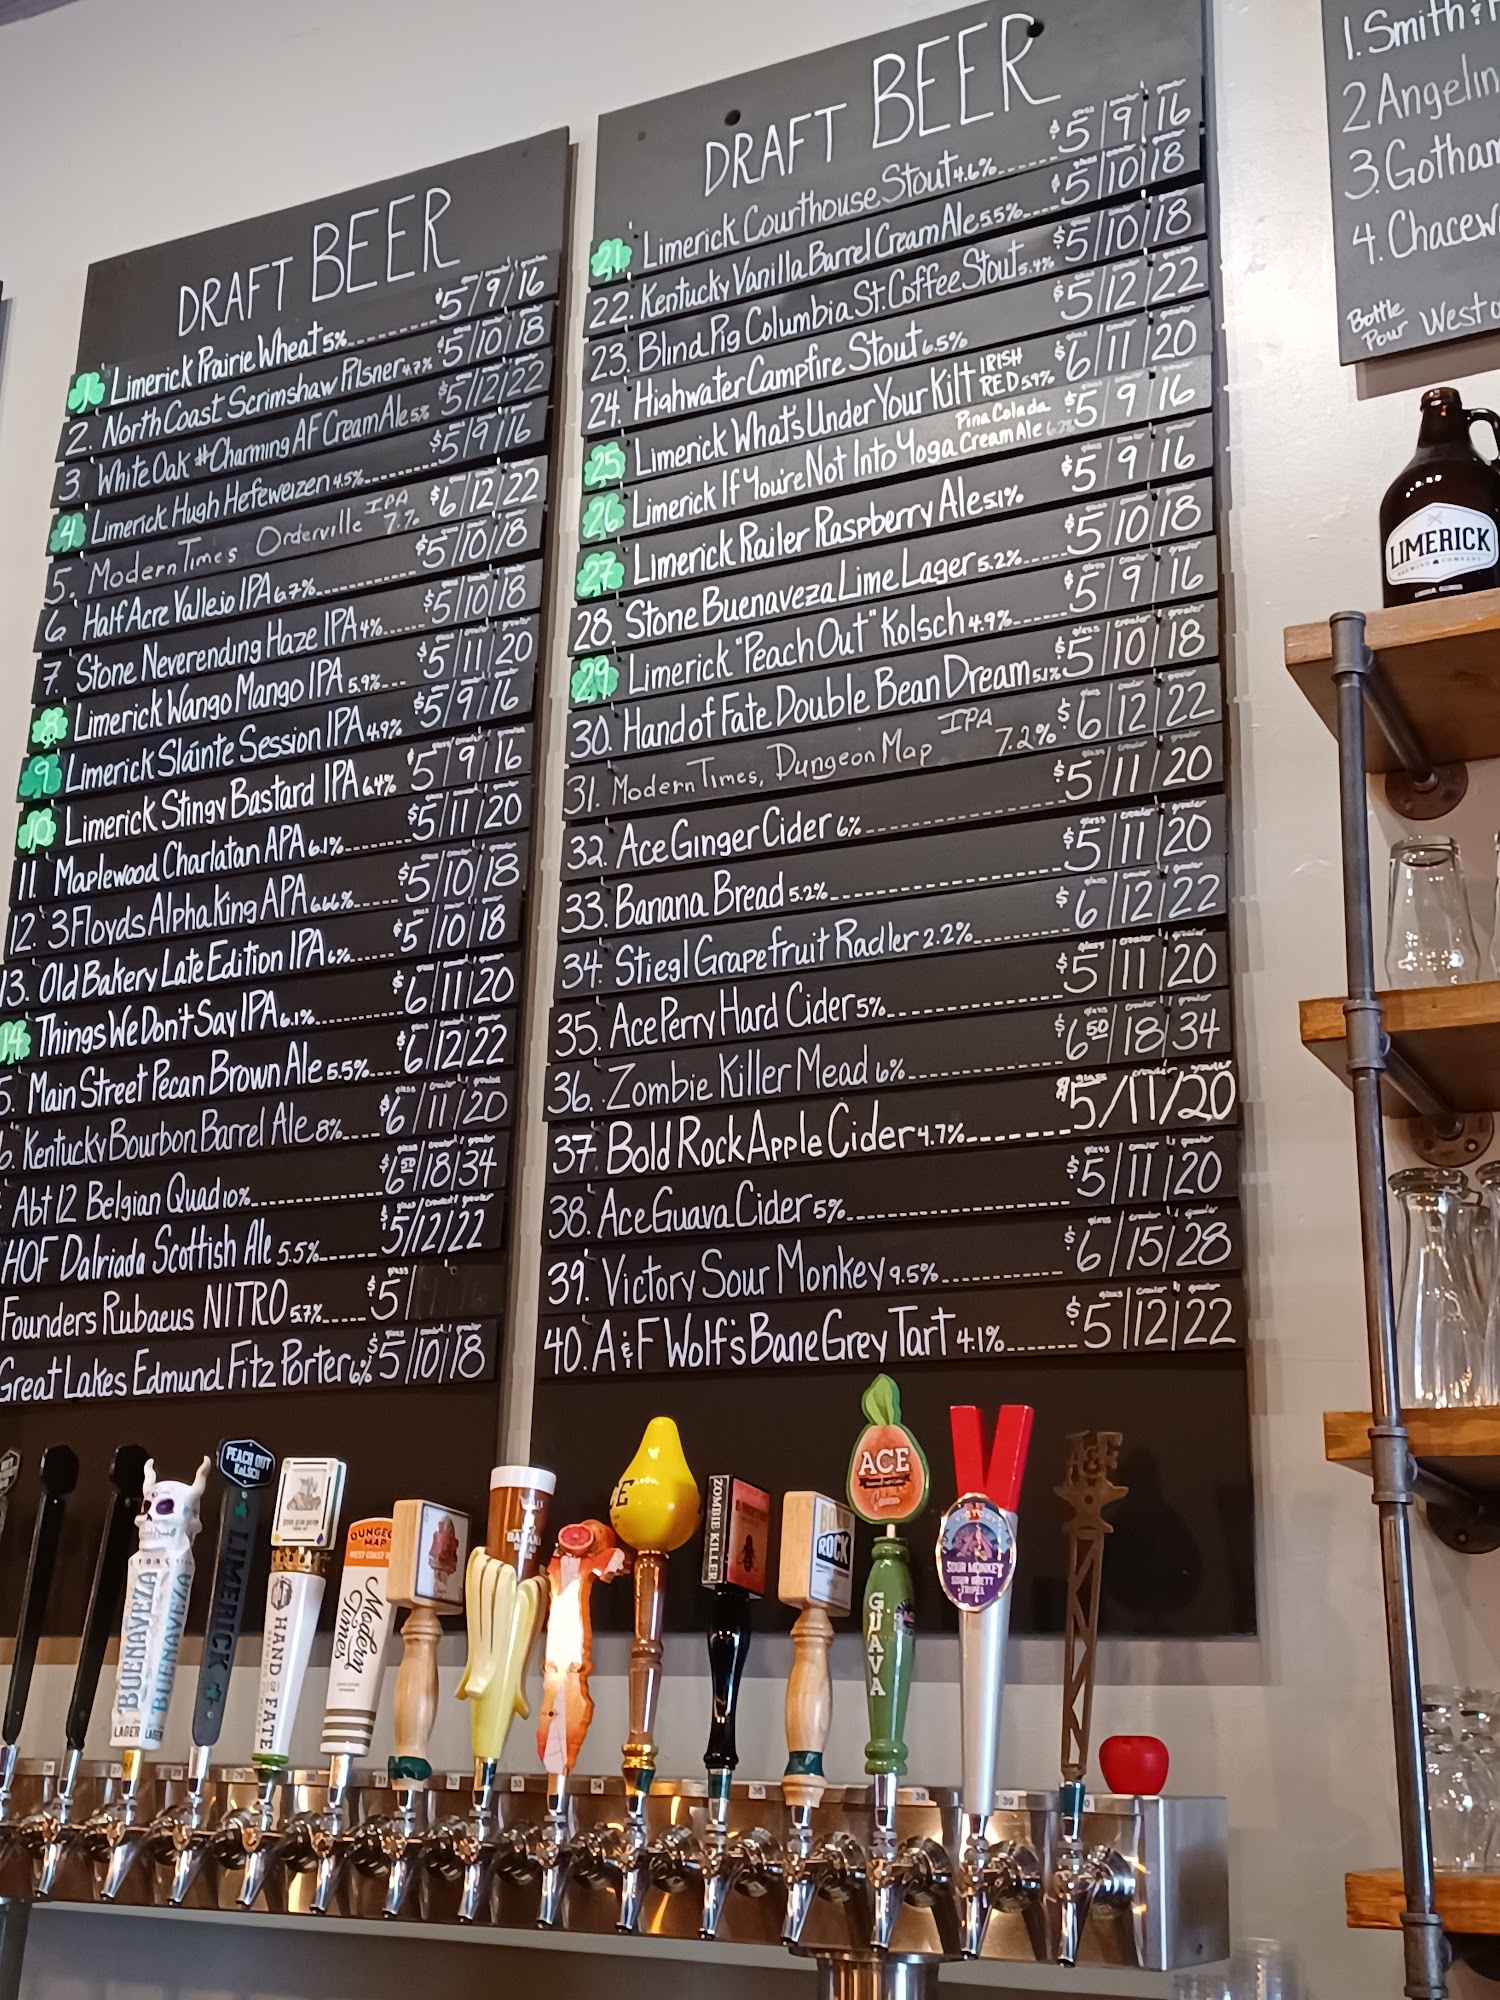 DRAFT BEER
1 Limerick Prairie Wheat 5% $5/9/16
2. North Coast Scrimshaw Pilsner 4.7% $5/10/18
3. White Oak #Charming AF Cream Ale 5% $5/12/22
4 Limerick Hugh Hefeweizen 4.5% $5/9/16
5. Modern Times Orderville IPA 7.% $6/12/22
6 Half Acre Vallejo IPA 6.7% $5/10/18
7. Stone Neverending Haze IPA 4% $5/10/18
8 Limerick Wango Mango IPA 5.9% $5/11/20
9 Limerick Sláinte Session IPA 4.9% $5/9/16
10 Limerick Stingy Bastard IPA 6.4% $5/9/16
11. Maplewood Charlatan APA 6.1% $5/11/20
12. 3 Floyds Alpha King APA 6.66% $5/10/18
13. Old Bakery Late Edition IPA 6% $5/10/18
14 Things We Don't Say IPA 6.1% $6/11/20
5. Main Street Pecan Brown Ale 5.5% $6/12/22
6. Kentucky Bourbon Barrel Ale 8% $6/11/20
Abt 12 Belgian Quad 10% $6 50/18/34
HOF Dalriada Scottish Ale 5.5% $5/12/22
Founders Rubaeus NITRO 5.7% $5/
Great Lakes Edmund Fitz Porter 6% $5/10/18
DRAFT BEER
21 Limerick Courthouse Stout 4.6% $5/9/16
22. Kentucky Vanilla Barrel Cream Ale 5.5% $5/10/18
23. Blind Pig Columbia St. Coffee Stout 5.4% $5/10/18
24. Highwater Campfire Stout 6.5% $5/12/22
25 Limerick What's Under Your Kilt IRISH RED 5.9% $6/11/20
26 Limerick If You're Not Into Yoga Pina Colada Cream Ale $5/9/16
27 Limerick Railer Raspberry Ale 5.1% $5/9/16
28. Stone Buenaveza Lime Lager 5.2% $5/10/18
29 Limerick "Peach Out" Kolsch 4.9% $5/9/16
30. Hand of Fate Double Bean Dream 5.1% $5/10/18
31. Modern Times, Dungeon Map IPA 7.2% $6/12/22
32. Ace Ginger Cider 6% $5/11/20
33. Banana Bread 5.2% $5/11/20
34. Stiegl Grapefruit Radler 2.2% $6/12/22
35. Ace Perry Hard Cider 5% $5/11/20
36. Zombie Killer Mead 6% $6 50/18/34
37. Bold Rock Apple Cider 4.7% $5/11/20
38. Ace Guava Cider 5% $5/11/20
39. Victory Sour Monkey 9.5% $6/15/28
40. A&F Wolf's Bane Grey Tart 4.1% $5/12/22
1. Smith &
2 Angelin
3. Gotham
4. Chacew
Bottle
Pour Westo
LIMERICK
BREWING COMPANY
PEACH OUT
KOLSCH
LIMERICK
BUENAVEZA
BUENAVEZA
LAGER
LAGER
HAND OF FATE
DUNGEON
MAP
WEST COAST
Modern
Times
ZOMBIE KILLER
ROCK
ACE
GUAVA
VICTORY
SOUR MONKEY
SOUR BRETT
TRIPEL
A&F